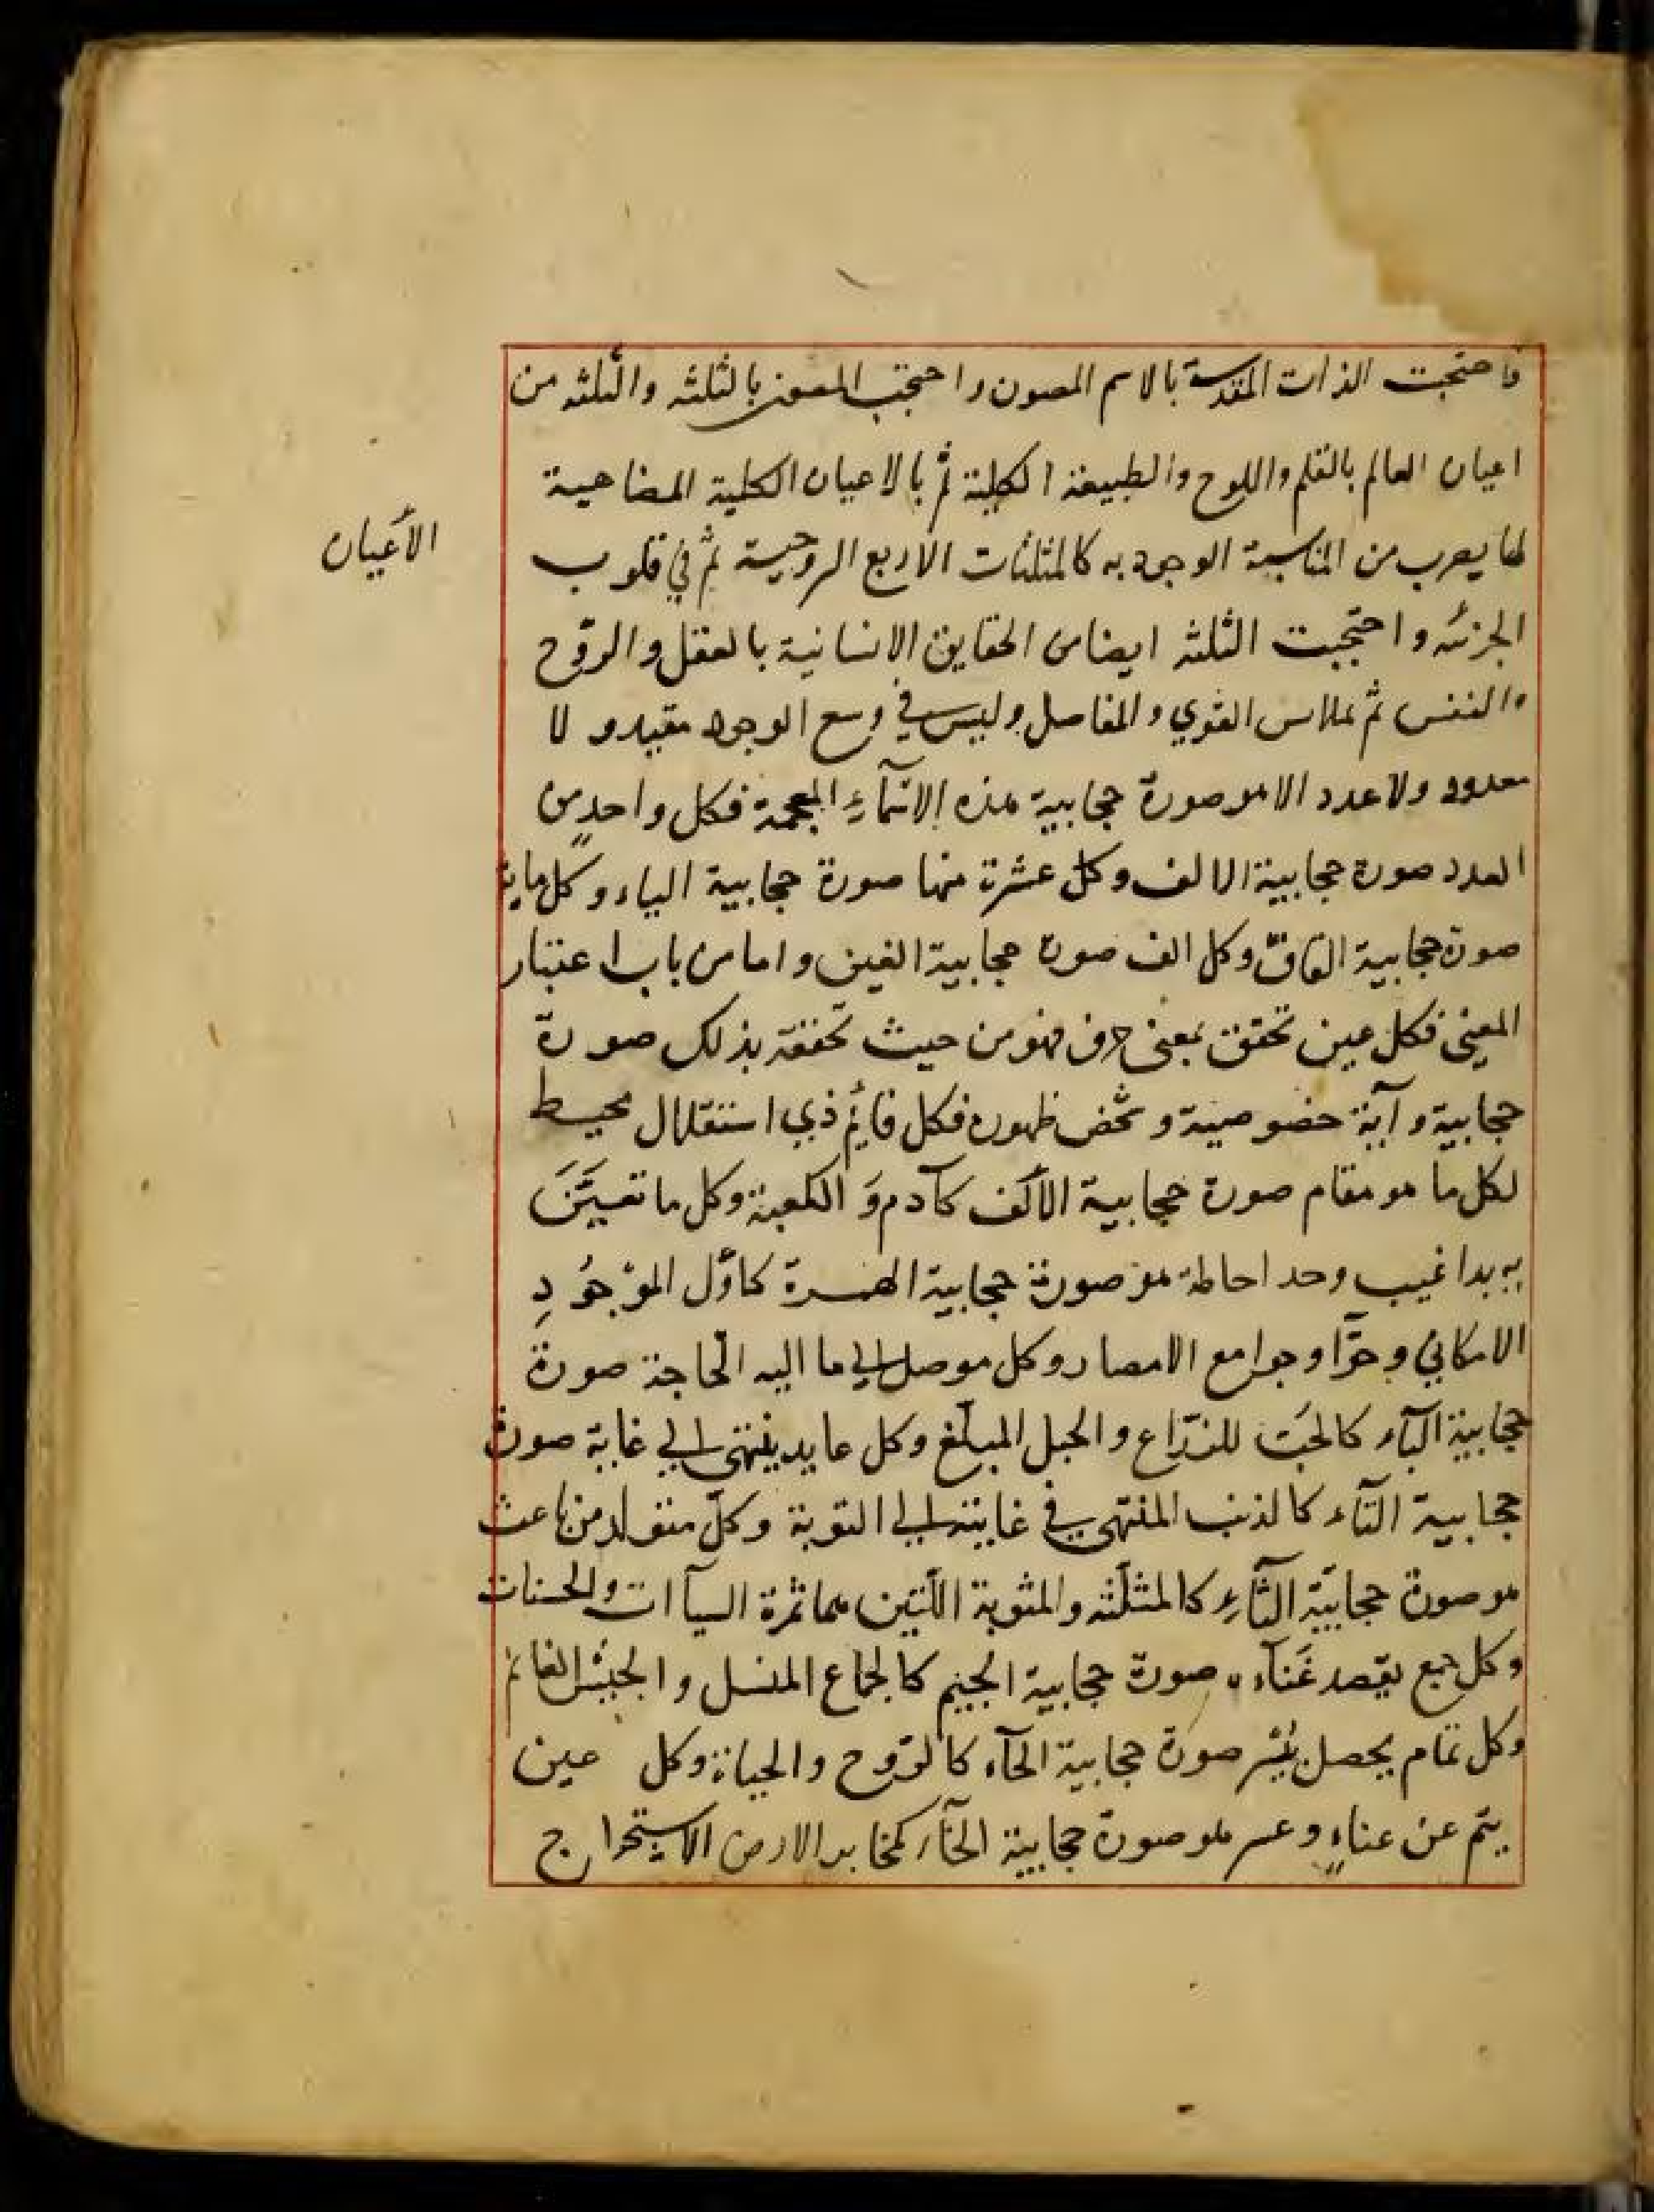 فاحتجبت الذات المقدسة بالاسم المصون واحتجب المصون بالثلثه والثلثه من
اعيان العالم بالقلم واللوح والطبيعة الكلية ثم بالاعيان الكلية المضاهية
لها يعرب من المناسبة الوجوه به كالمثلثات الاربع الروحية ثم في قلوب
الأعيان
الجزئه واحتجبت الثلثه ايضا من الحقايق الانسانية بالعقل والروح
والنفس ثم بملابس القوي والمفاصل وليس في وسع الوجود مقيد و لا
معدود ولا عدد الا هو صورة حجابية هذه الاسمآء المعجمة فكل واحد من
العدد صورة حجابية الالف وكل عشرة منها صورة حجابية الياء وكل ماية
صورة حجابية القاف وكل الف صورة حجابية الغين واما من باب اعتبار
المعنى فكل عين تحقق بمعنى حرف فهو من حيث تحققه بذلك صورة
حجابية وآية خصوصية و ظهوره فكل قائم ذي استقلال محيط
لكل ما هو مقام صورة حجابية الألف كآدم وَ الكعبة وكل ما تعيَّنَ
به بدا غيب وحد احاطة هو صورة حجابية الهمزة كاوّل الموْجُودِ
الامكاني وحوّا وجوامع الامصار وكل موصل الي ما اليه الحاجة صورة
حجابية البآء كالحَبّ للزرّاع والحبل المبلّغ وكل عايد ينتهي الي غاية صورة
حجابية التآء كالذنب المنتهي في غايته الي التوبة وكلّ متولد من باعث
هو صورة حجابيّة الثآءِ كالمثلّثه والمثوبة اللّتين هما ثمرة السيآات والحسنات
وكل جمع يقصد غَنآءه صورة حجابية الجيم كالجماع المنسل والجيش الغانم
وكل تمام يحصل بيُسْر صورة حجابية الحآء كالرّوح والحياة وكل عين
يتم عن عناءٍ وعسر هو صورة حجابية الخآء الارض الاستخراج